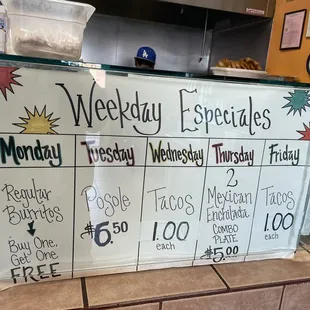 Weekday Especiales
Monday
Regular
Burritos
Buy One,
Get One
FREE
Tuesday
Posole
$6.50
Wednesday
Tacos
1.00
each
Thursday
2
Mexican
Enchilada
COMBO
PLATE
$5.00
Friday
Tacos
1.00
each